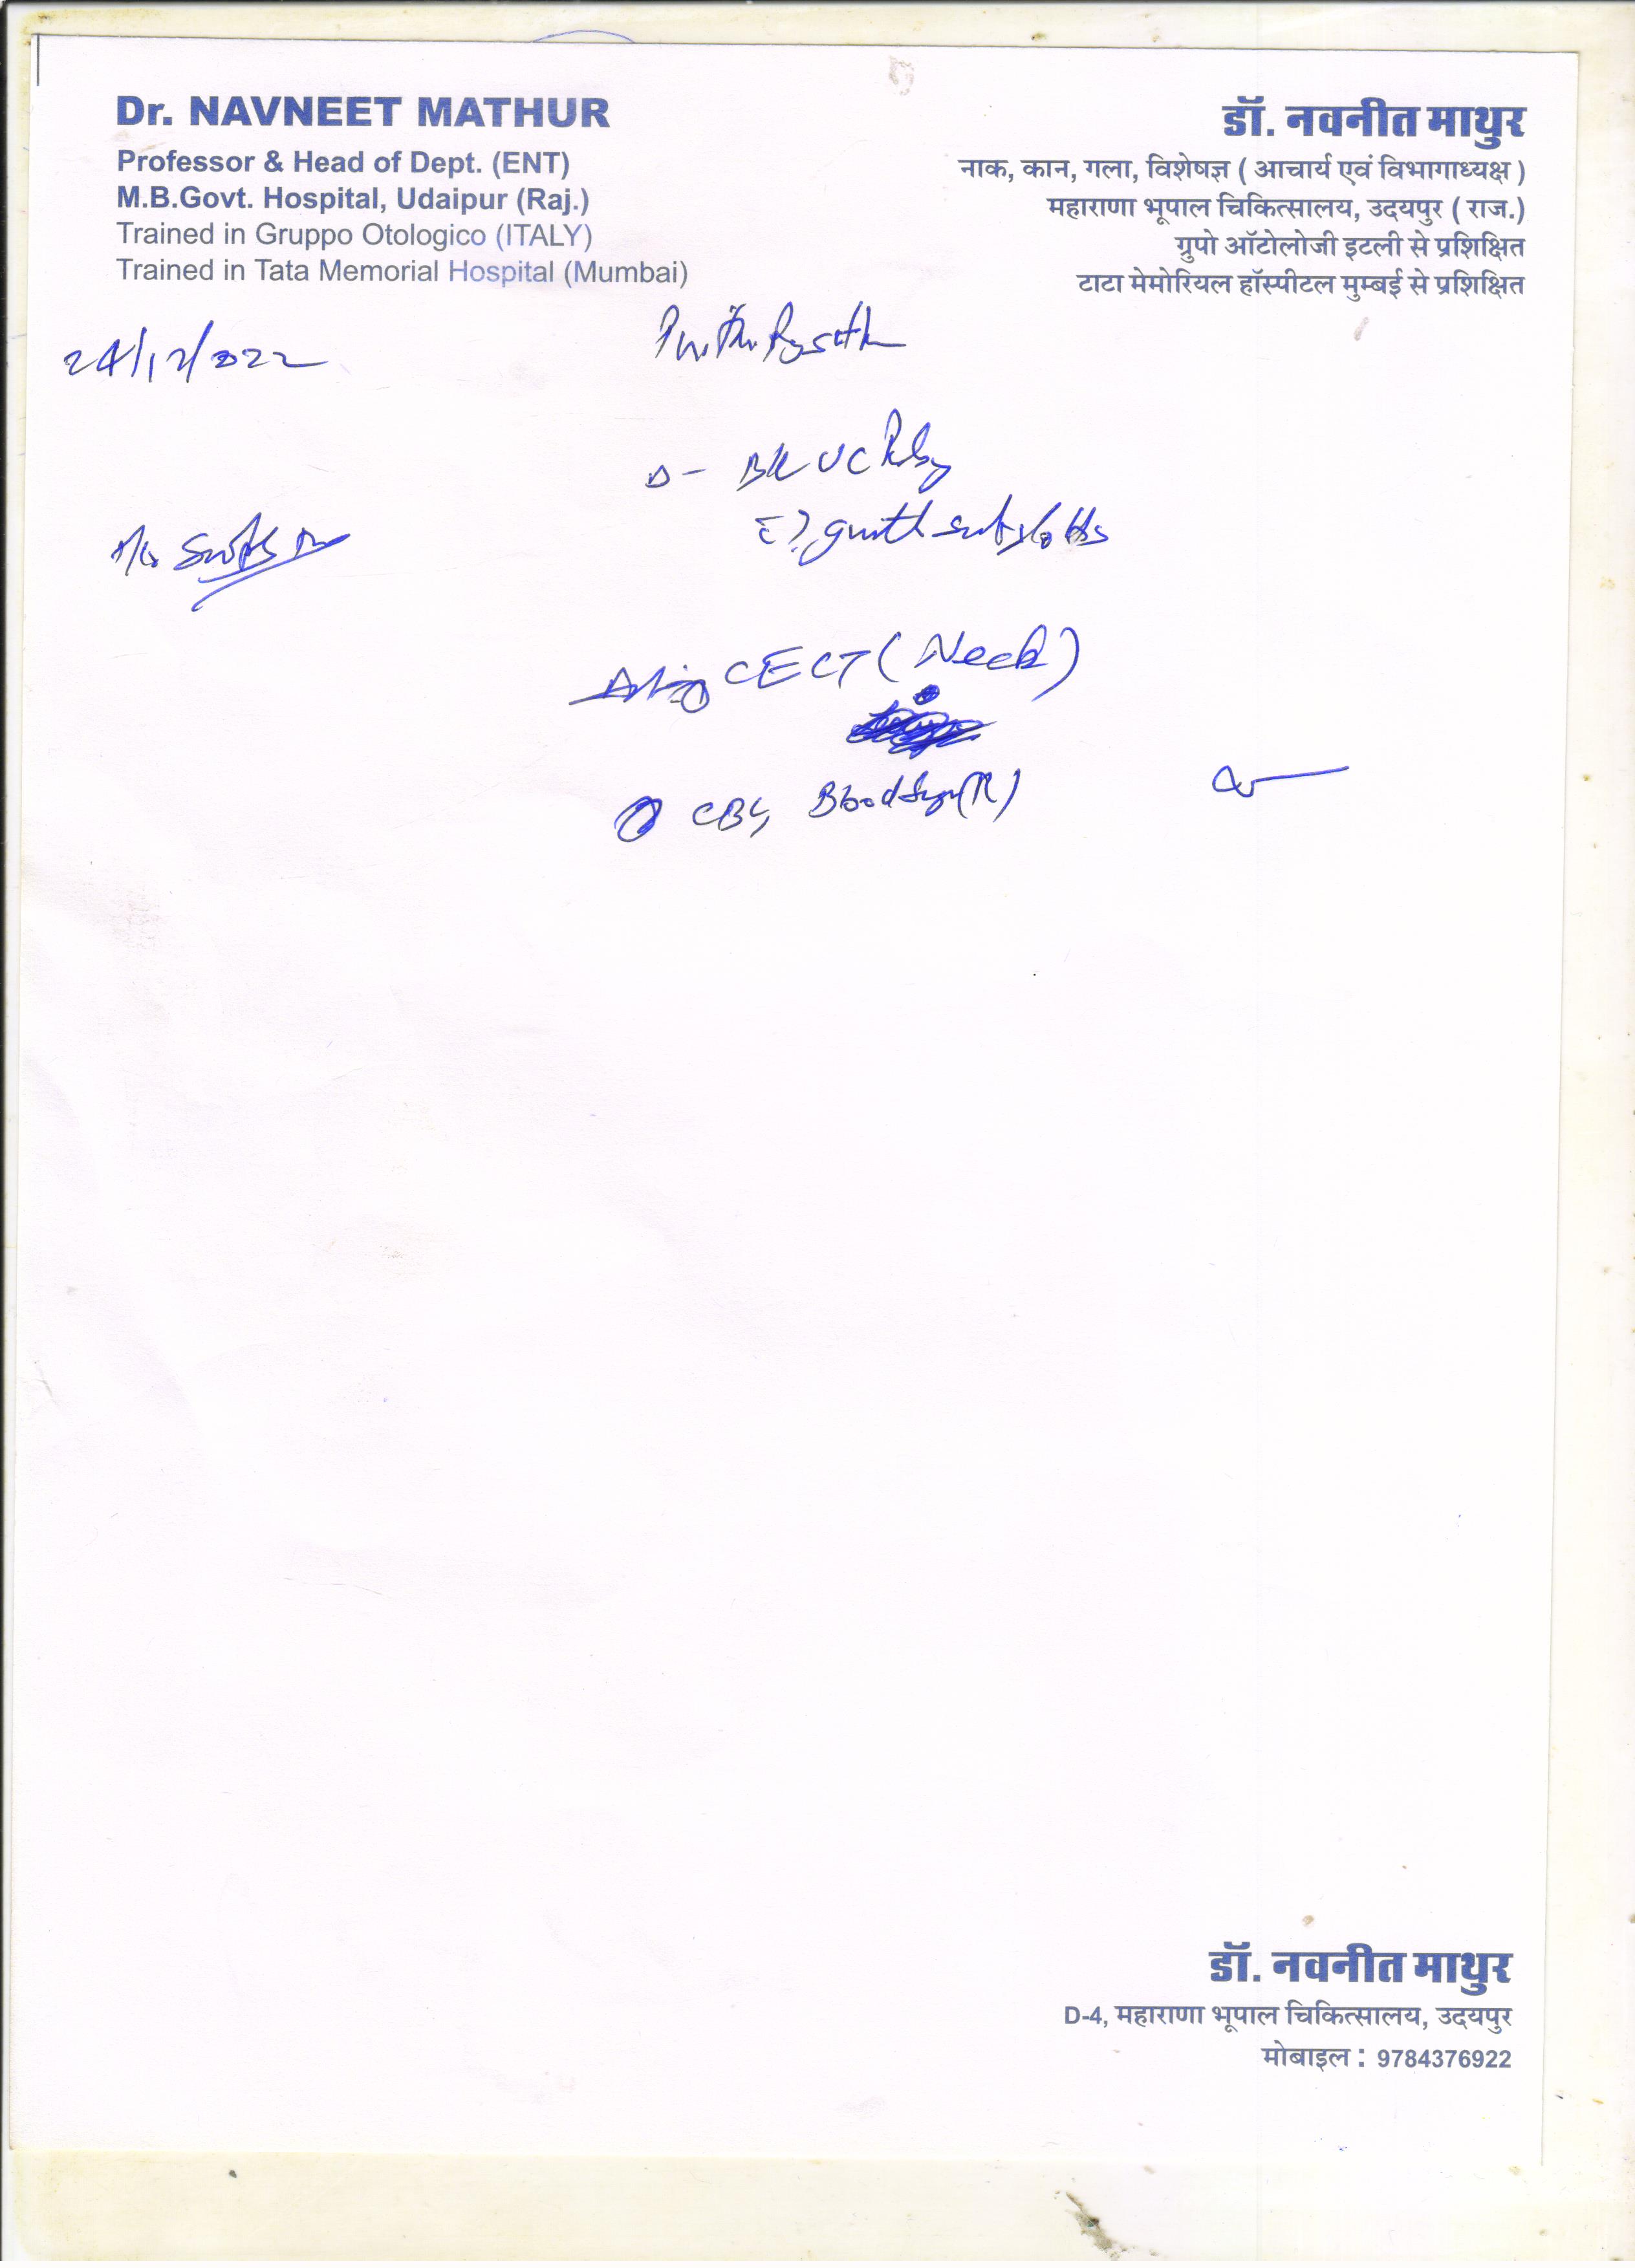 Dr. NAVNEET MATHUR
Professor & Head of Dept. (ENT)
M.B.Govt. Hospital, Udaipur (Raj.)
Trained in Gruppo Otologico (ITALY)
Trained in Tata Memorial Hospital (Mumbai)
डॉ. नवनीत माथुर
नाक, कान, गला, विशेषज्ञ ( आचार्य एवं विभागाध्यक्ष )
महाराणा भूपाल चिकित्सालय, उदयपुर ( राज.)
ग्रुपो ऑटोलोजी इटली से प्रशिक्षित
टाटा मेमोरियल हॉस्पीटल मुम्बई से प्रशिक्षित
24/12/2022
CECT (Neck)
CBC, Blood Sugar (R)
डॉ. नवनीत माथुर
D-4, महाराणा भूपाल चिकित्सालय, उदयपुर
मोबाइल : 9784376922